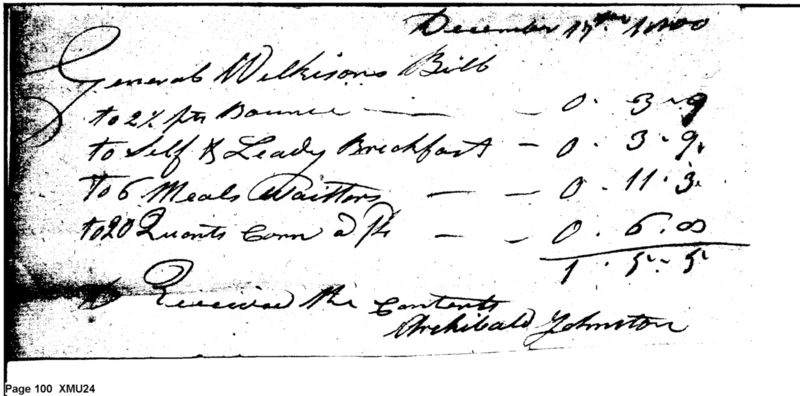 December 17th 1800
General Wilkisons Bill
to 2½ pts Bounce — — 0 . 3 . 9
to Self & Leady Breckfast — 0 . 3 . 9.
to 6 Meals Waitters — — 0 . 11 . 3.
to 20 Quarts Corn a — — 0 . 6 . 8
1 . 5 . 5
Received the Contents
Archibald Johnston
Page 100 XMU24